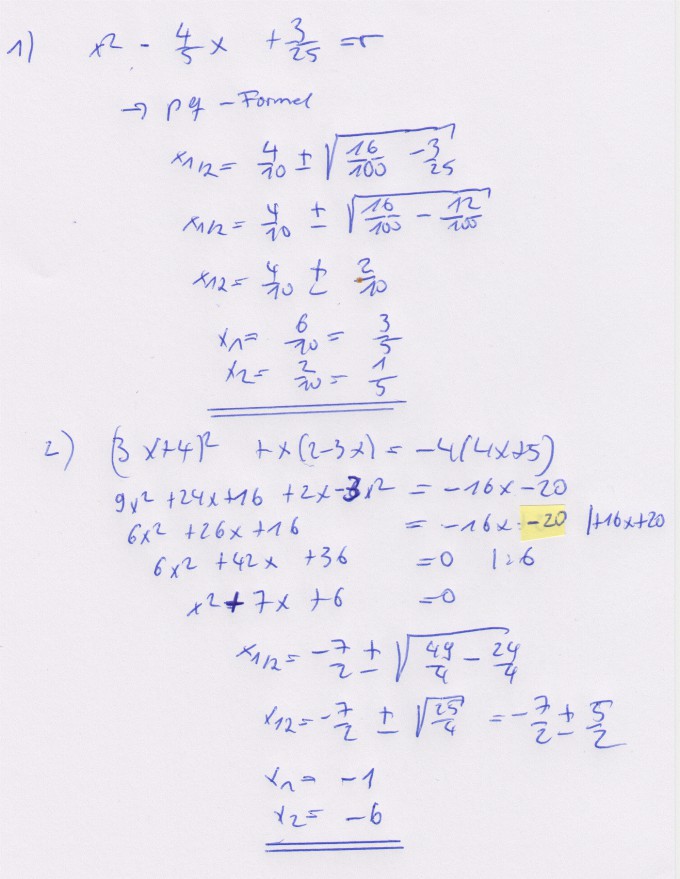 1) x² - 4/5 x + 3/25 = r
→ pq - Formel
x1/2 = 4/10 ± √(16/100 - 3/25)
x1/2 = 4/10 ± √(16/100 - 12/100)
x12 = 4/10 ± 2/10
x1 = 6/10 = 3/5
x2 = 2/10 = 1/5
2) (3x+4)² + x(2-3x) = -4(4x+5)
9x² + 24x + 16 + 2x - 3x² = -16x - 20
6x² + 26x + 16 = -16x -20 |+16x+20
6x² + 42x + 36 = 0 |:6
x² + 7x + 6 = 0
x1/2 = -7/2 ± √(49/4 - 24/4)
x12 = -7/2 ± √(25/4) = -7/2 ± 5/2
x1 = -1
x2 = -6